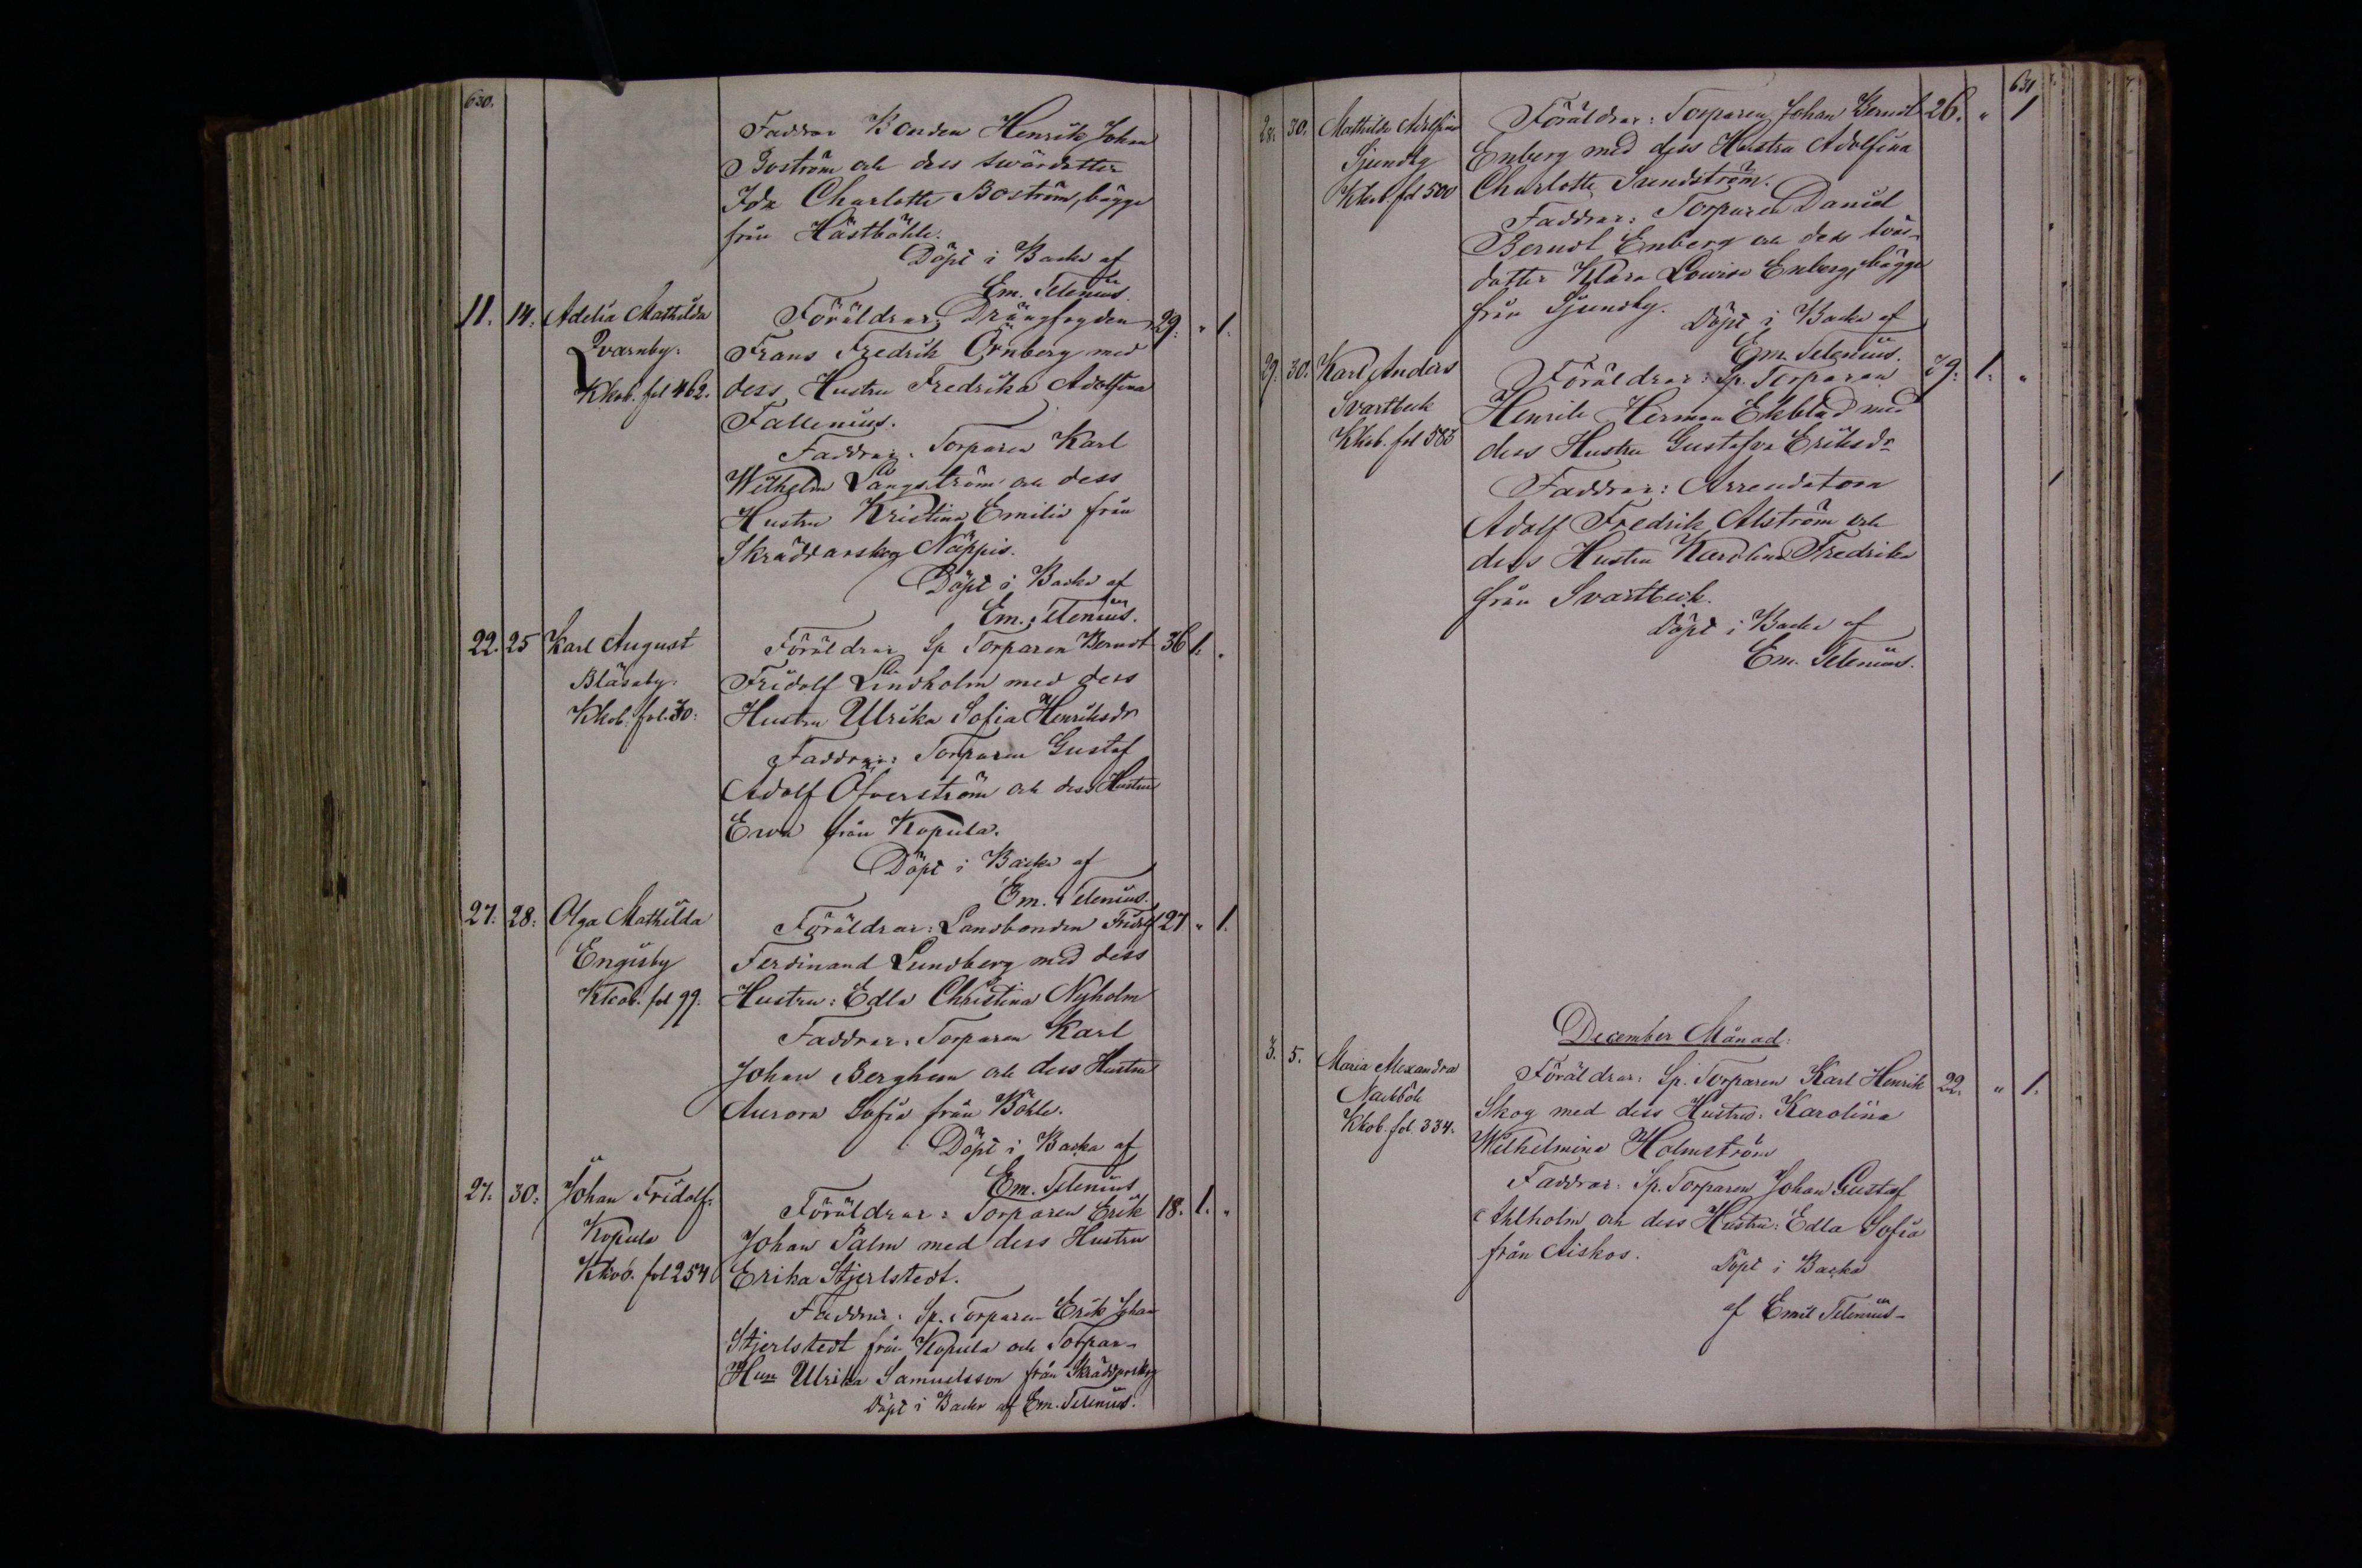 630.
Faddrar Bonden Henrik Johan
Boström och dess swärdotter
Ida Charlotta Boström, bägge
från Hästböhle.
Döpt i Backa af
Em. Telenius.
11. 14. Adelia Mathilda Föräldrar, Drängfogden 29. " 1.
Qvarnby. Frans Fredrik Örnberg med
Kkob. fol 462. dess Hustru Fredrika Adolfina
Fallenius.
Faddrar. Torparen Karl
Wilhelm Långström och dess
Hustru Kristina Emilia från
Skräddarskog Näppis.
Döpt i Backa af
Em. Telenius.
22. 25 Karl August Föräldrar Sp Torparen Berndt 36 1. "
Bläsaby. Fridolf Lindholm med dess
Kkob. fol. 30. Hustru Ulrika Sofia Henriksdr
Faddrar: Torparen Gustaf
Adolf Öfverström och dess Hustru
Ewa från Kopula.
Döpt i Backa af
Em. Telenius.
27. 28. Olga Mathilda Föräldrar: Landbonden Fridolf 27 " 1.
Engisby Ferdinand Lundberg med dess
Kkob. fol 99. Hustru: Edla Christina Nyholm
Faddrar. Torparen Karl
Johan Berghem och dess Hustru
Aurora Sofia från Böhle.
Döpt i Backa af
Em. Telenius
27. 30. Johan Fridolf. Föräldrar: Torparen Erik 18. 1. "
Kopula Johan Palm med dess Hustru
Kkob. fol 254 Erika Stjerlstedt.
Faddrar. Sp. Torparen Erik Johan
Stjerlstedt från Kopula och Torpar-
Hun Ulrika Samuelsson från Skräddarskog
Döpt i Backa af Em. Telenius.
631
28. 30. Mathilda Adolfina Föräldrar: Torparen Johan Berndt 26. " 1
Sjundby Enberg med dess Hustru Adolfina
Kkob. fol 500 Charlotta Sundström.
Faddrar: Torparen Daniel
Berndt Enberg och dess
dotter Klara Lowisa Enberg, bägge
från Sjundby.
Döpt i Backa af
Em. Telenius.
29. 30. Karl Anders Föräldrar: Sp. Torparen 39. 1. "
Svartbeck Henrik Herman Ekblad med
Kkob. fol 583 dess Hustru Gustafva Eriksdr
Faddrar: Arrendatorn
Adolf Fredrik Alström och
dess Hustru Karolina Fredrika
från Svartbeck.
Döpt i Backa af
Em. Telenius.
December Månad:
3. 5. Maria Alexandra Föräldrar: Sp. Torparen Karl Henrik 22. " 1.
Nackböle Skog med dess Hustru. Karolina
Kkob. fol. 334. Wilhelmina Holmström
Faddrar. Sp. Torparen Johan Gustaf
Ahlholm och dess Hustru: Edla Sofia
från Aiskos.
Döpt i Backa
af Emil Telenius-